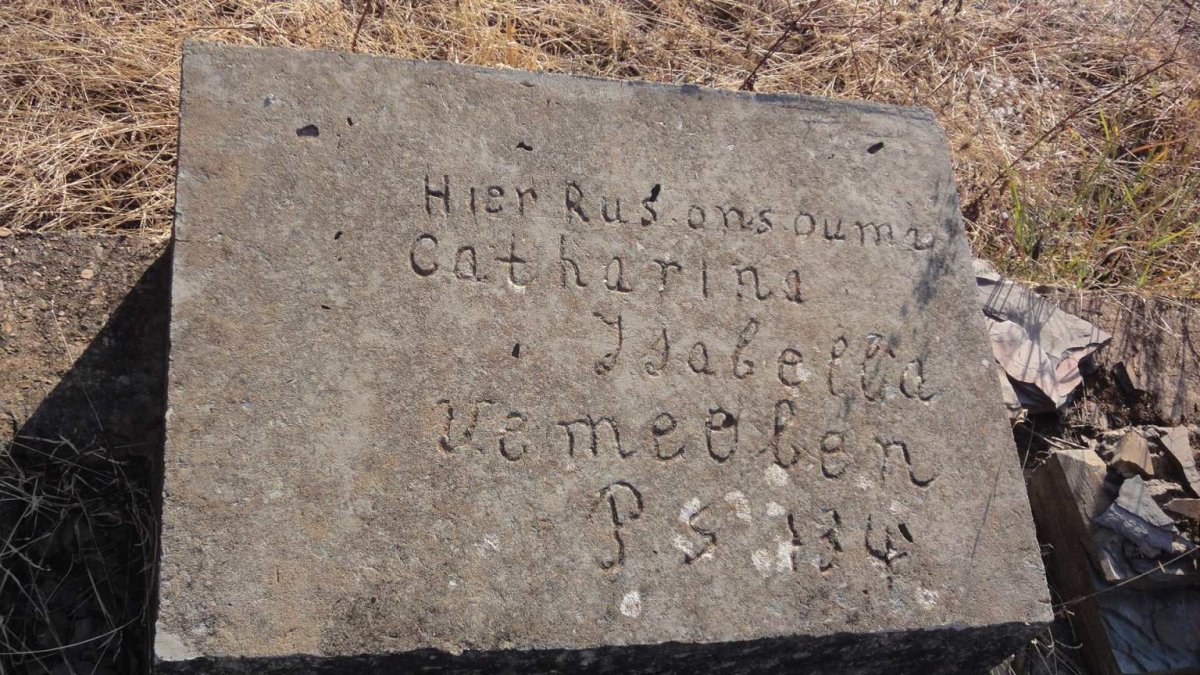 Hier Rus ons ouma
Catharina
Isabella
Vermeulen
P S 134